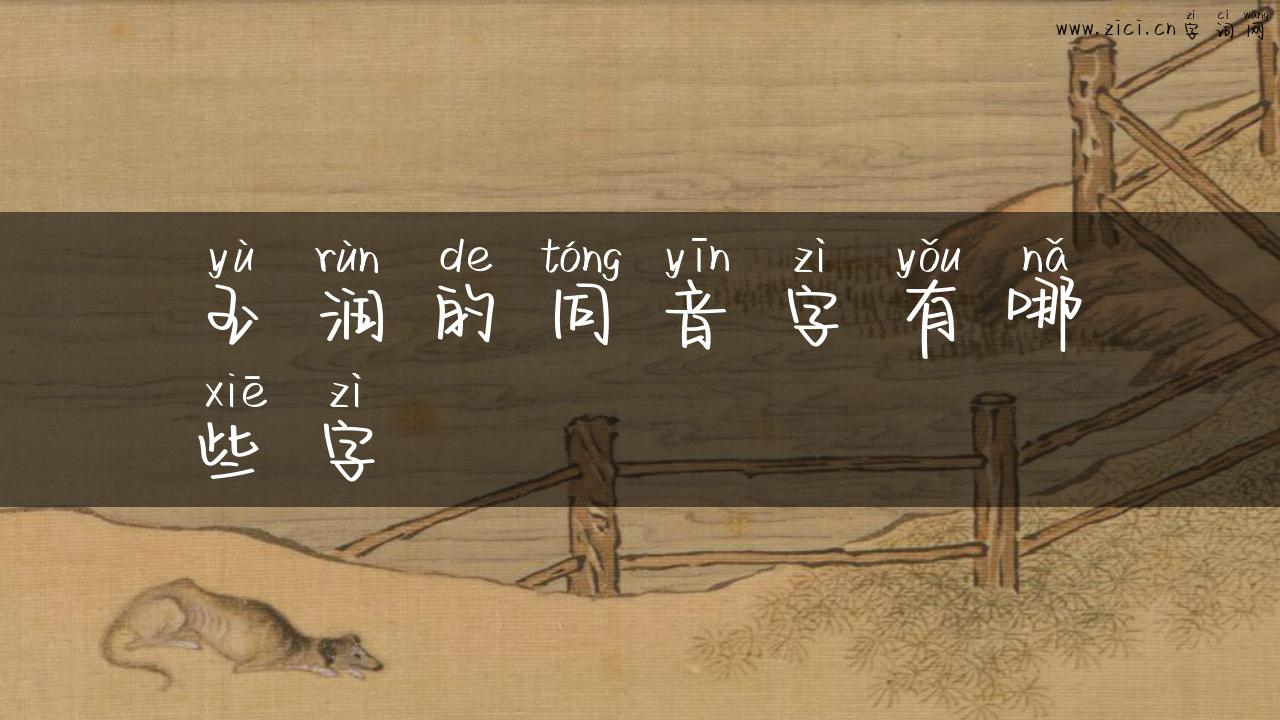 zì cí wǎng
www.zici.cn字词网
yù rùn de tóng yīn zì yǒu nǎ
玉润的同音字有哪
xiē zì
些字